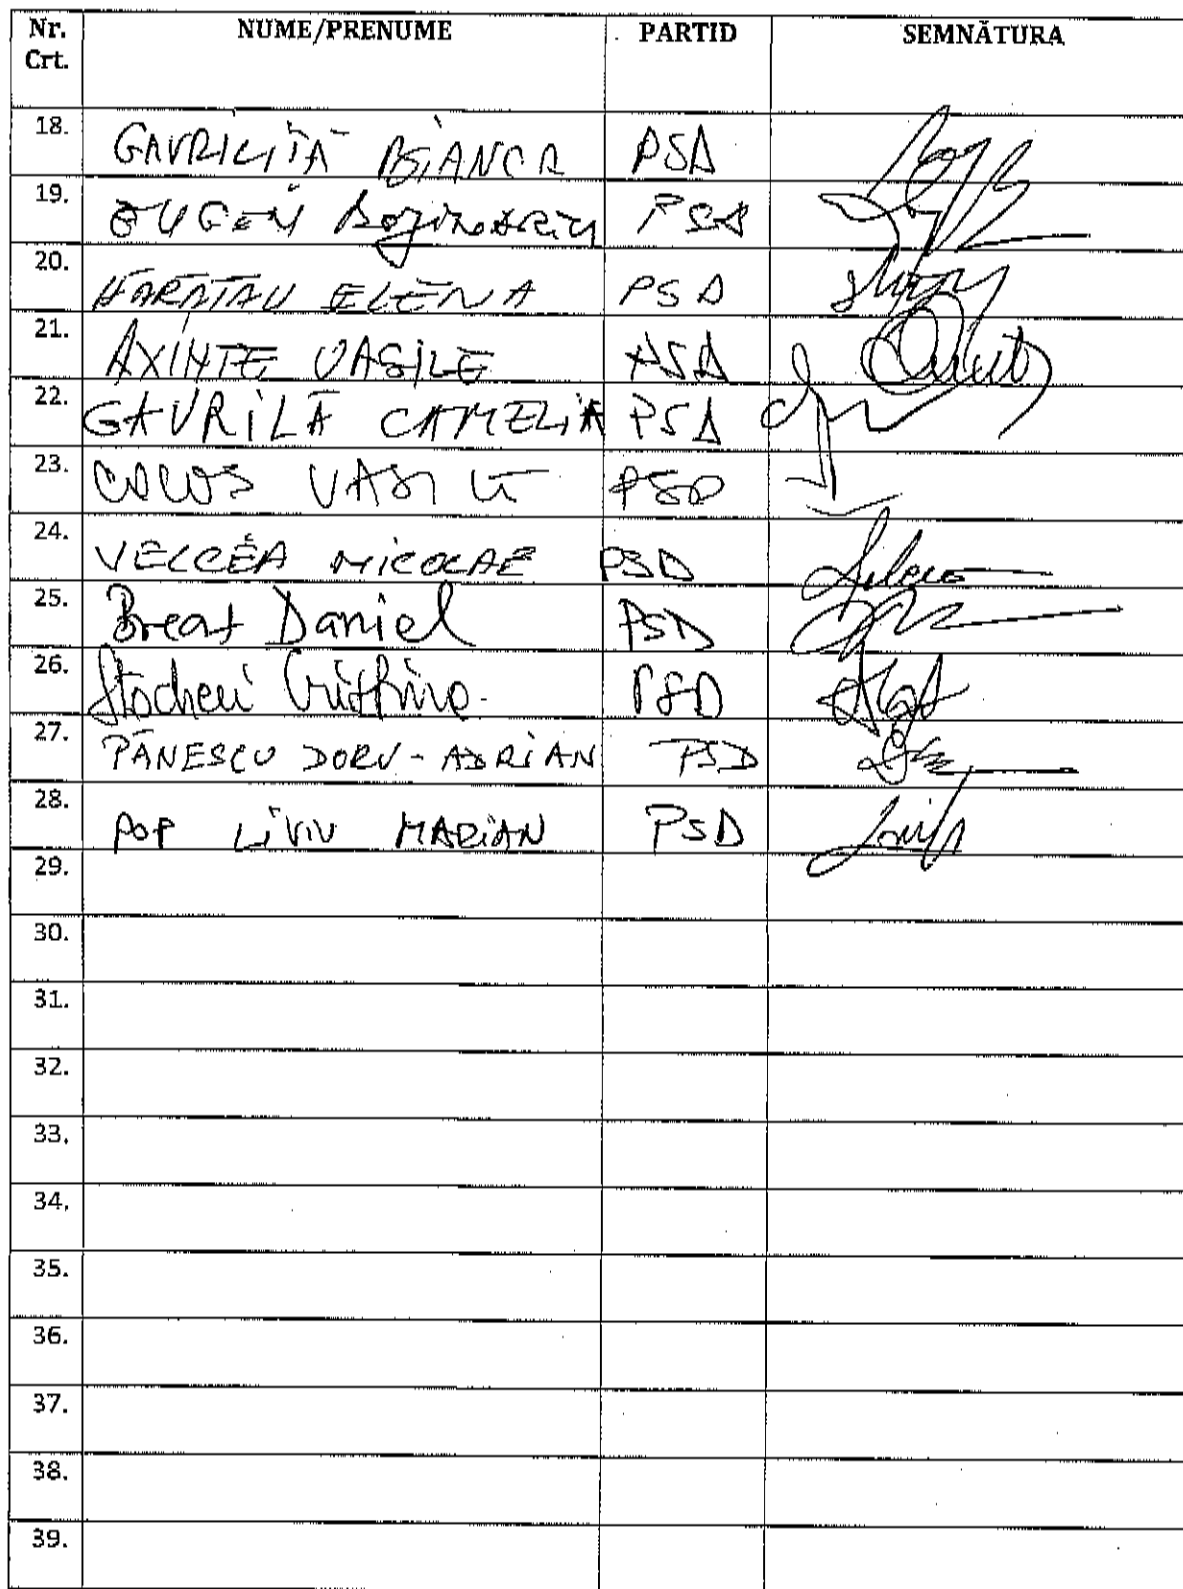 Nr. Crt. NUME/PRENUME PARTID SEMNĂTURA
18. GAVRILIȚĂ BIANCA PSD
19. EUGEN Bejinariu PSD
20. HĂRĂTĂU ELENA PSD
21. AXINTE VASILE PSD
22. GAVRILĂ CAMELIA PSD
23. COCOȘ VASILE PSD
24. VELCEA NICOLAE PSD
25. Breat Daniel PSD
26. Stocheci Cristina PSD
27. PĂNESCU DORU-ADRIAN PSD
28. POP LIVIU MARIAN PSD
29.
30.
31.
32.
33.
34.
35.
36.
37.
38.
39.